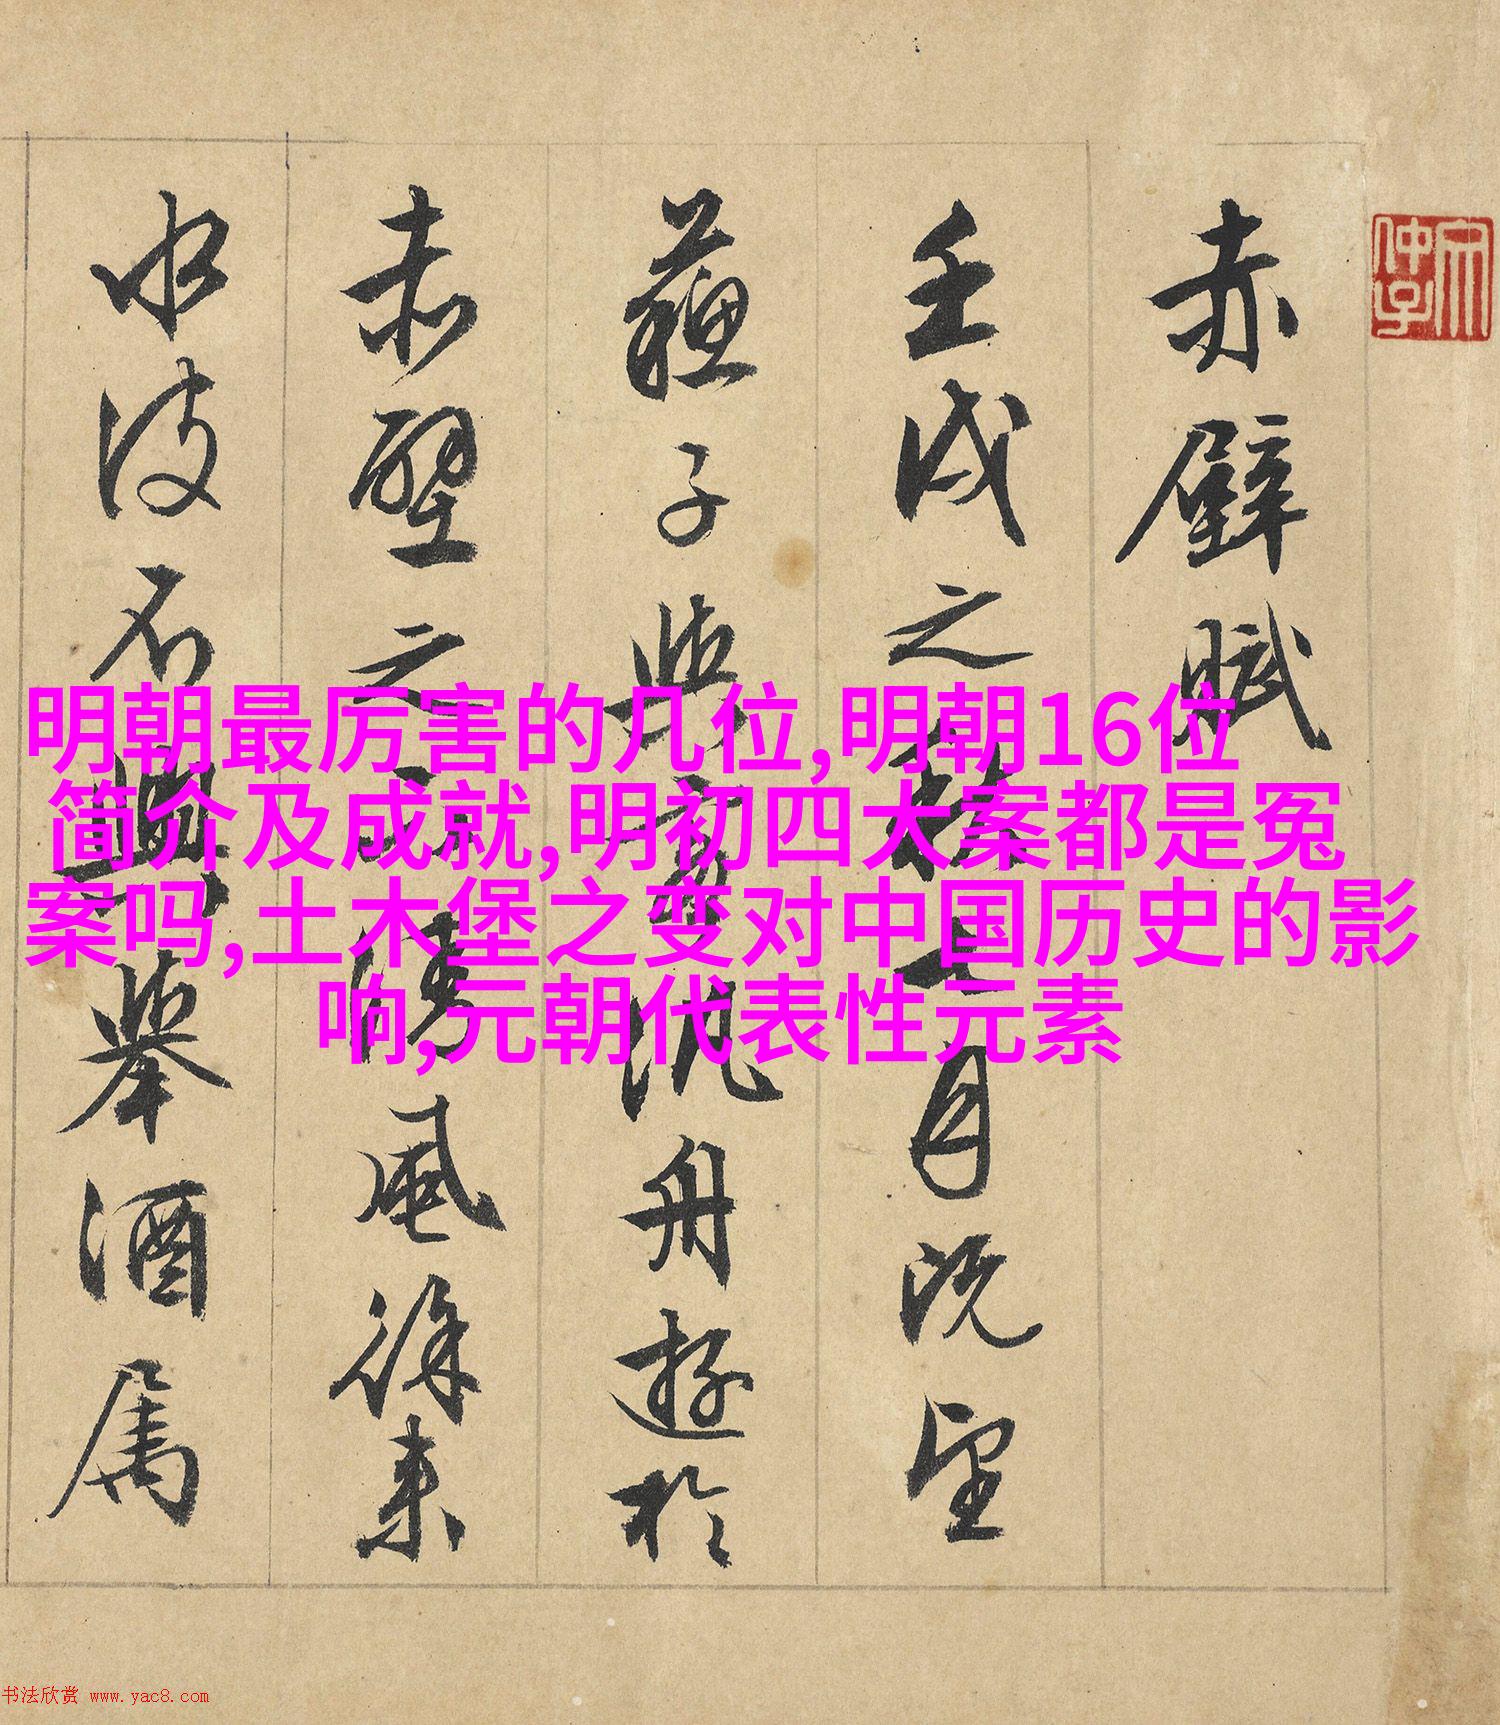 赤壁賦
壬戌之秋七月既望
蘇子與客泛舟遊於
赤壁之下清風徐來
水波不興舉酒屬
明朝最厉害的几位,明朝16位
简介及成就,明初四大案都是冤
案吗,土木堡之变对中国历史的影
响,元朝代表性元素
书法欣赏 www.yac8.com